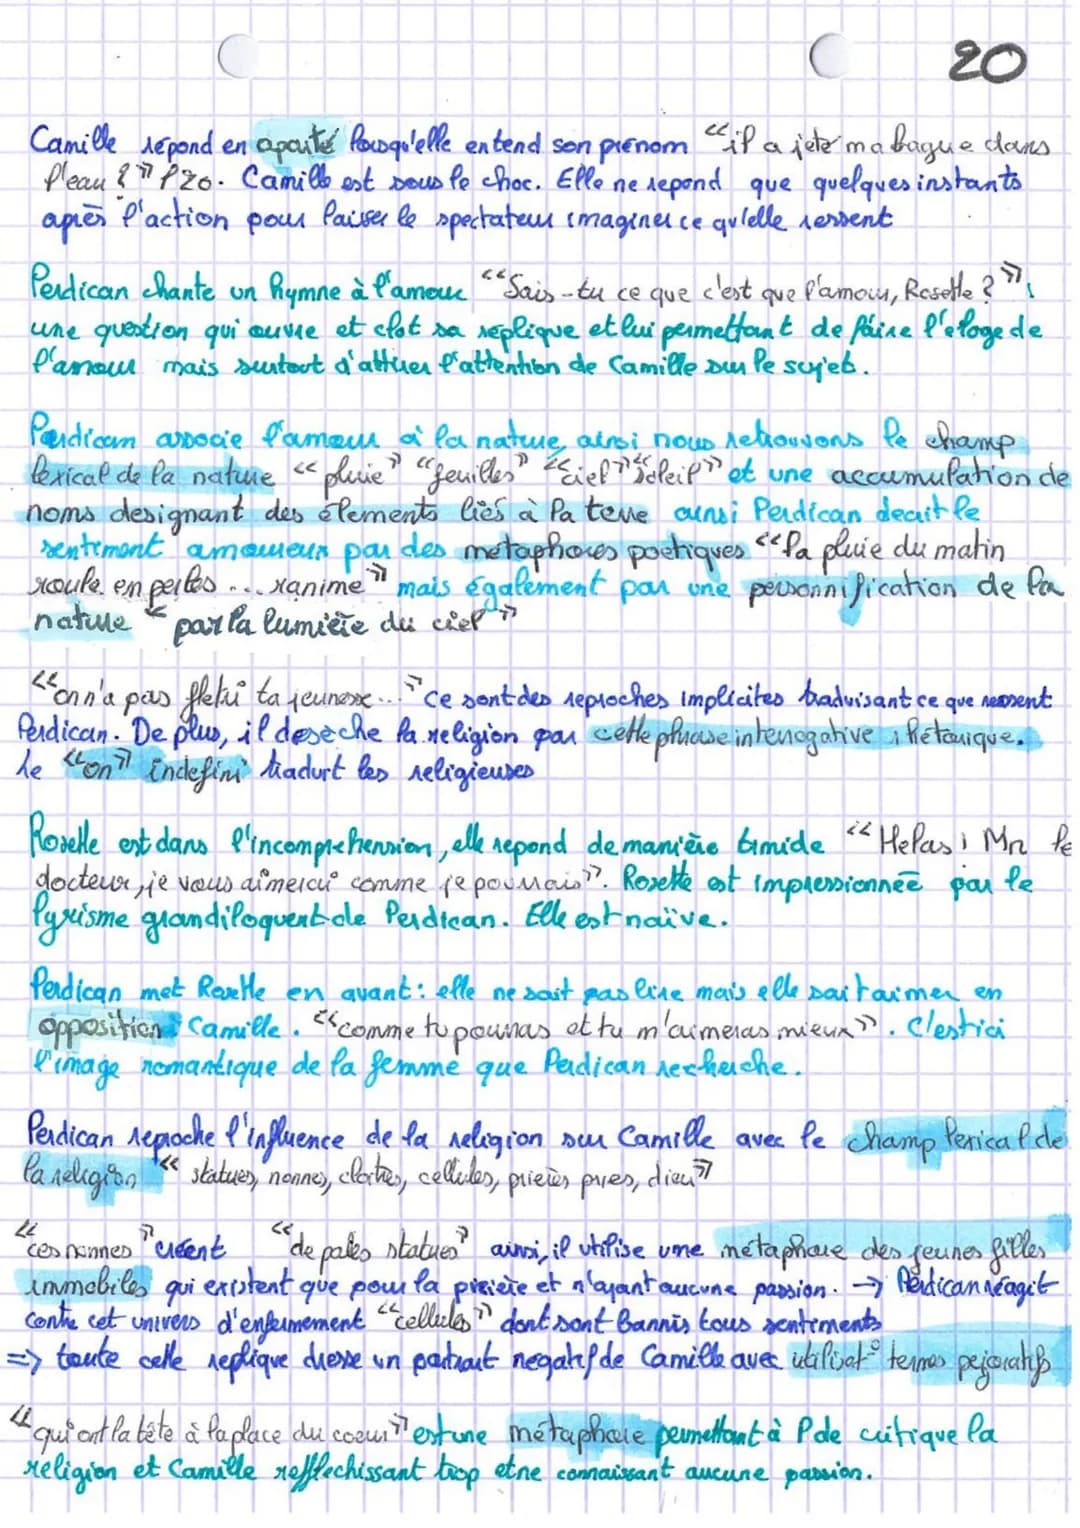 20
Camille répond en aparté lorsqu'elle entend son prénom "il a jeté ma bague dans
l'eau ?" l 20. Camille est sous le choc. Elle ne repond que quelques instants
après l'action pour laisser le spectateur imaginer ce qu'elle ressent
Perdican chante un hymne à l'amour "Sais-tu ce que c'est que l'amour, Rosette ?",
une question qui ouvre et clot sa réplique et lui permettant de faire l'eloge de
l'amour mais surtout d'attirer l'attention de Camille sur le sujet.
Perdican associe l'amour à la nature, ainsi nous retrouvons le champ
lexical de la nature "pluie" "feuilles" "ciel" "soleil" et une accumulation de
noms designant des élements liés à la terre ainsi Perdican decrit le
sentiment amoureux par des métaphores poetiques "la pluie du matin
roule en perles ... ranime" mais également par une personnification de la
nature "par la lumière du ciel"
"on n'a pas fletri ta jeunesse..." ce sont des reproches implicites traduisant ce que ressent
Perdican. De plus, il desèche la religion par cette phrase interrogative, rhétorique.
le "on" indefini traduit les religieuses
Rosette est dans l'incomprehension, elle repond de manière timide "Helas! Mr le
docteur, je vous aimerai comme je pourrais". Rosette est impressionnée par le
lyrisme grandiloquent de Perdican. Elle est naïve.
Perdican met Rosette en avant : elle ne sait pas lire mais elle sait aimer en
opposition à Camille. "comme tu pourras et tu m'aimeras mieux". C'est ici
l'image romantique de la femme que Perdican recherche.
Perdican reproche l'influence de la religion sur Camille avec le champ lexical de
la religion "statues, nonnes, cloitres, cellules, prières, dieu"
"ces nonnes" créent "de pales statues" ainsi, il utilise une métaphore des jeunes filles
immobiles qui existent que pour la prière et n'ayant aucune passion. → Perdican réagit
contre cet univers d'enfermement "cellules" dont sont bannis tous sentiments
=> toute cette replique dresse un portrait negatif de Camille avec utilisat° termes pejoratifs
"qui ont la tête à la place du coeur" est une métaphore permettant à P de critique la
religion et Camille refflechissant trop et ne connaissant aucune passion.